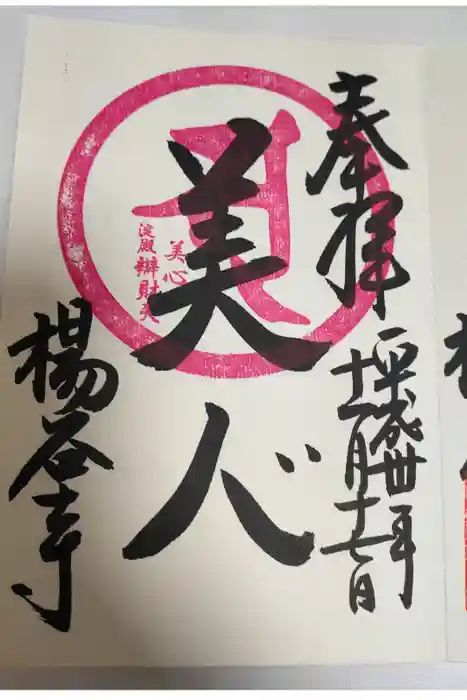 奉拝
平成卅年
十二月十七日
美人
美心
淀殿
辨財天
楊谷寺